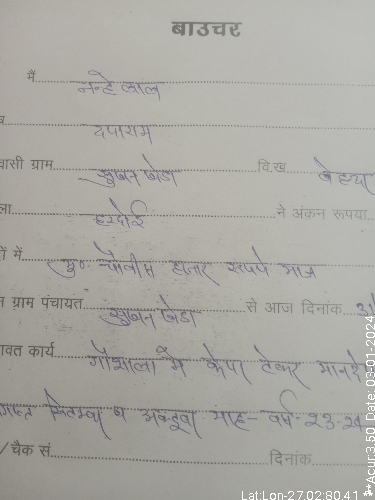 बाउचर
मैं नन्हे लाल
दयाराम
वासी ग्राम सुखन खेडा वि.ख. बेहन्दर
ला हरदोई ने अंकन रूपया
ों में मु० चौबीस हजार रूपये मात्र
ग्राम पंचायत सुखन खेडा से आज दिनांक
ावत कार्य गौशाला में केयर टेकर मानदेय
सितम्बर व अक्टूबर माह- वर्ष- 23-24
/चैक सं. दिनांक
Lat:Lon-27.02:80.41
**Acur:3.50 Date: 03-01-2024